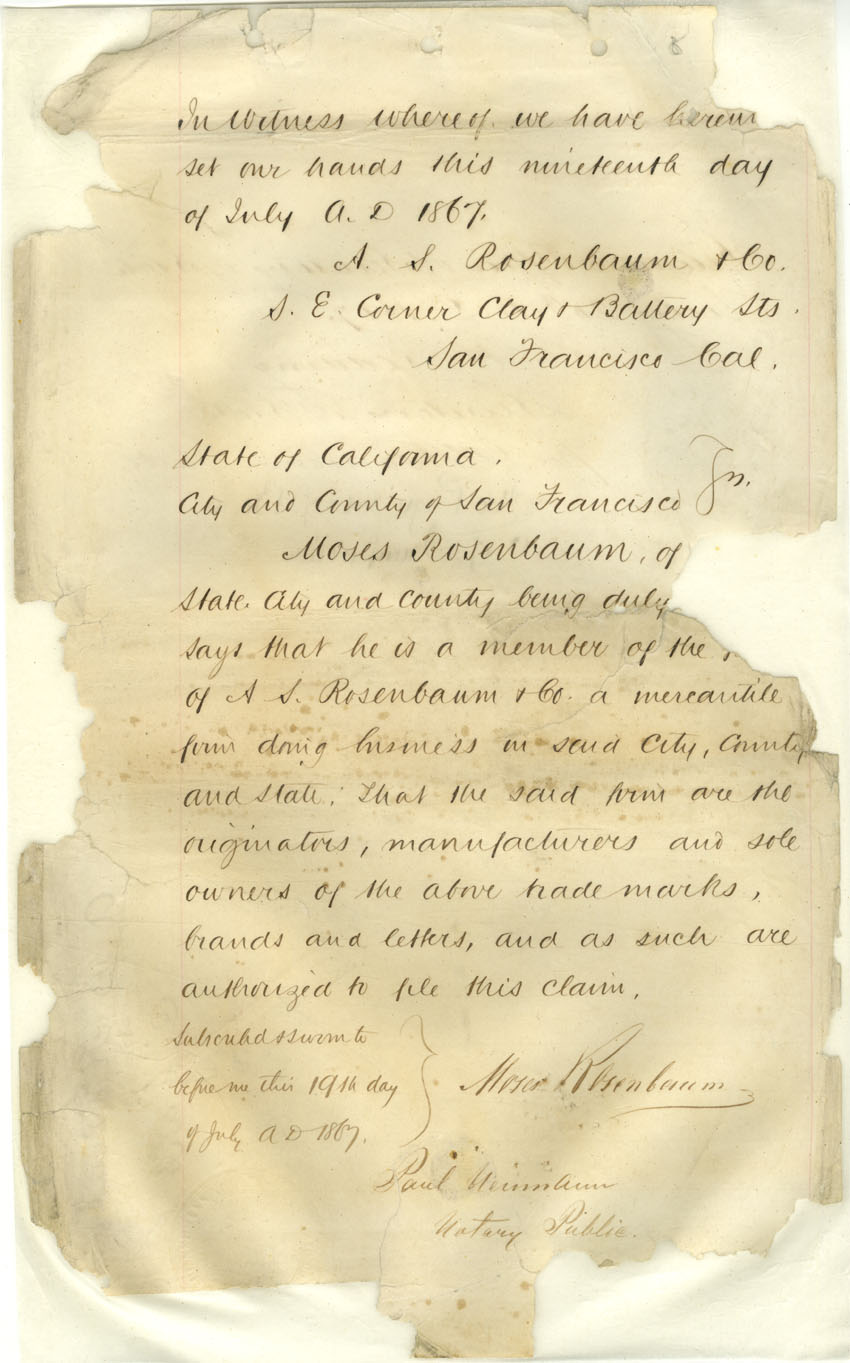 8
In Witness whereof we have herein
set our hands this nineteenth day
of July A. D 1867.
A. S. Rosenbaum & Co.
S. E. Corner Clay & Battery Sts.
San Francisco Cal.
State of California.
City and County of San Francisco } ss.
Moses Rosenbaum, of
State. City and County being duly
says that he is a member of the
of A S. Rosenbaum & Co. a mercantile
firm doing business in said City, County
and State; That the said firm are the
originators, manufacturers and sole
owners of the above trade marks,
brands and letters, and as such are
authorized to file this claim.
Subscribed & sworn to
before me this 19th day
of July A D 1867.
Moses Rosenbaum
Paul
Notary Public.